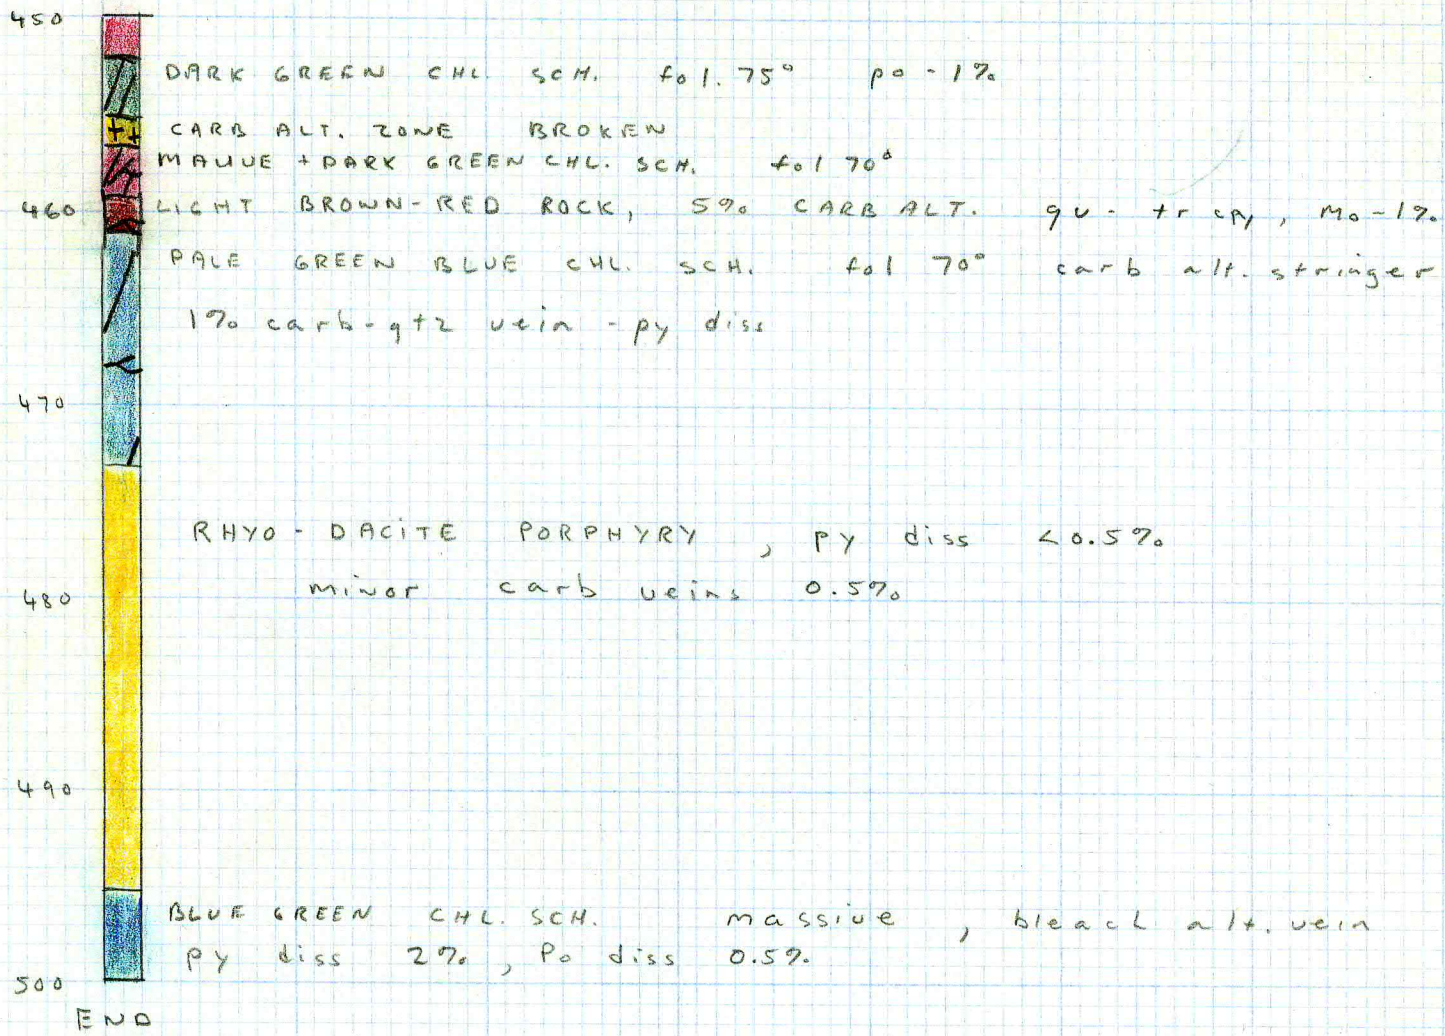 450
DARK GREEN CHL SCH. fol. 75° po - 1%
CARB ALT. ZONE BROKEN
MAUVE + DARK GREEN CHL. SCH. fol 70°
460 LIGHT BROWN-RED ROCK, 5% CARB ALT. qv - tr cpy, Mo-1%
PALE GREEN BLUE CHL. SCH. fol 70° carb alt. stringer
1% carb-qtz vein - py diss
470
RHYO-DACITE PORPHYRY, py diss <0.5%
480 minor carb veins 0.5%
490
BLUE GREEN CHL. SCH. massive, bleach alt. vein
py diss 2%, Po diss 0.5%
500
END